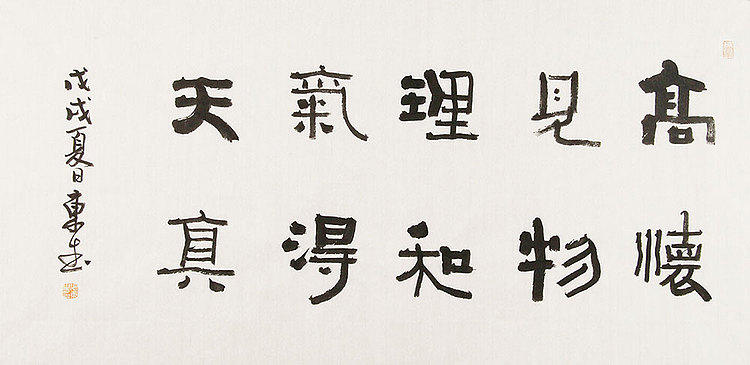 髙懷
見物
理和
氣得
天真
戊戌夏日東志